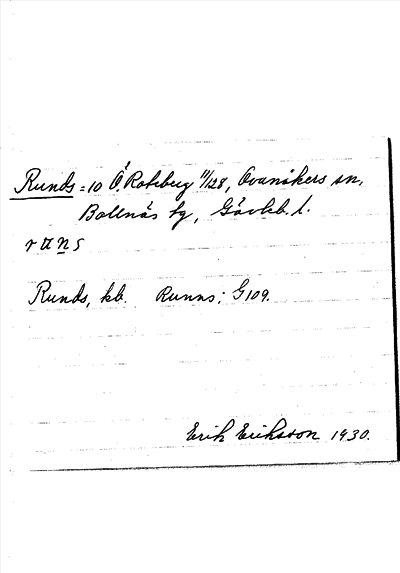 Runds = 10 Ö. Roteberg 11/128, Ovanåkers sn,
Bollnäs tg, Gävleb. l.
Runds, kb. Runns; G109.
Erik Eriksson 1930.